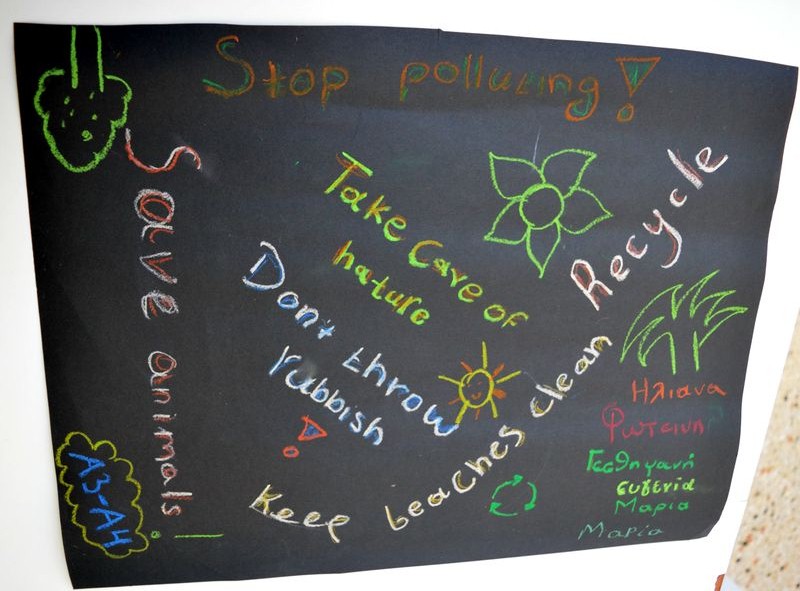 Stop polluting!
Save animals!
Take care of
nature
Recycle
Don't throw
rubbish
!
Keep beaches clean
Ηλιανα
Φωτεινη
Γεσθημανή
ευγενία
Μαρια
Μαρία
A3-A4